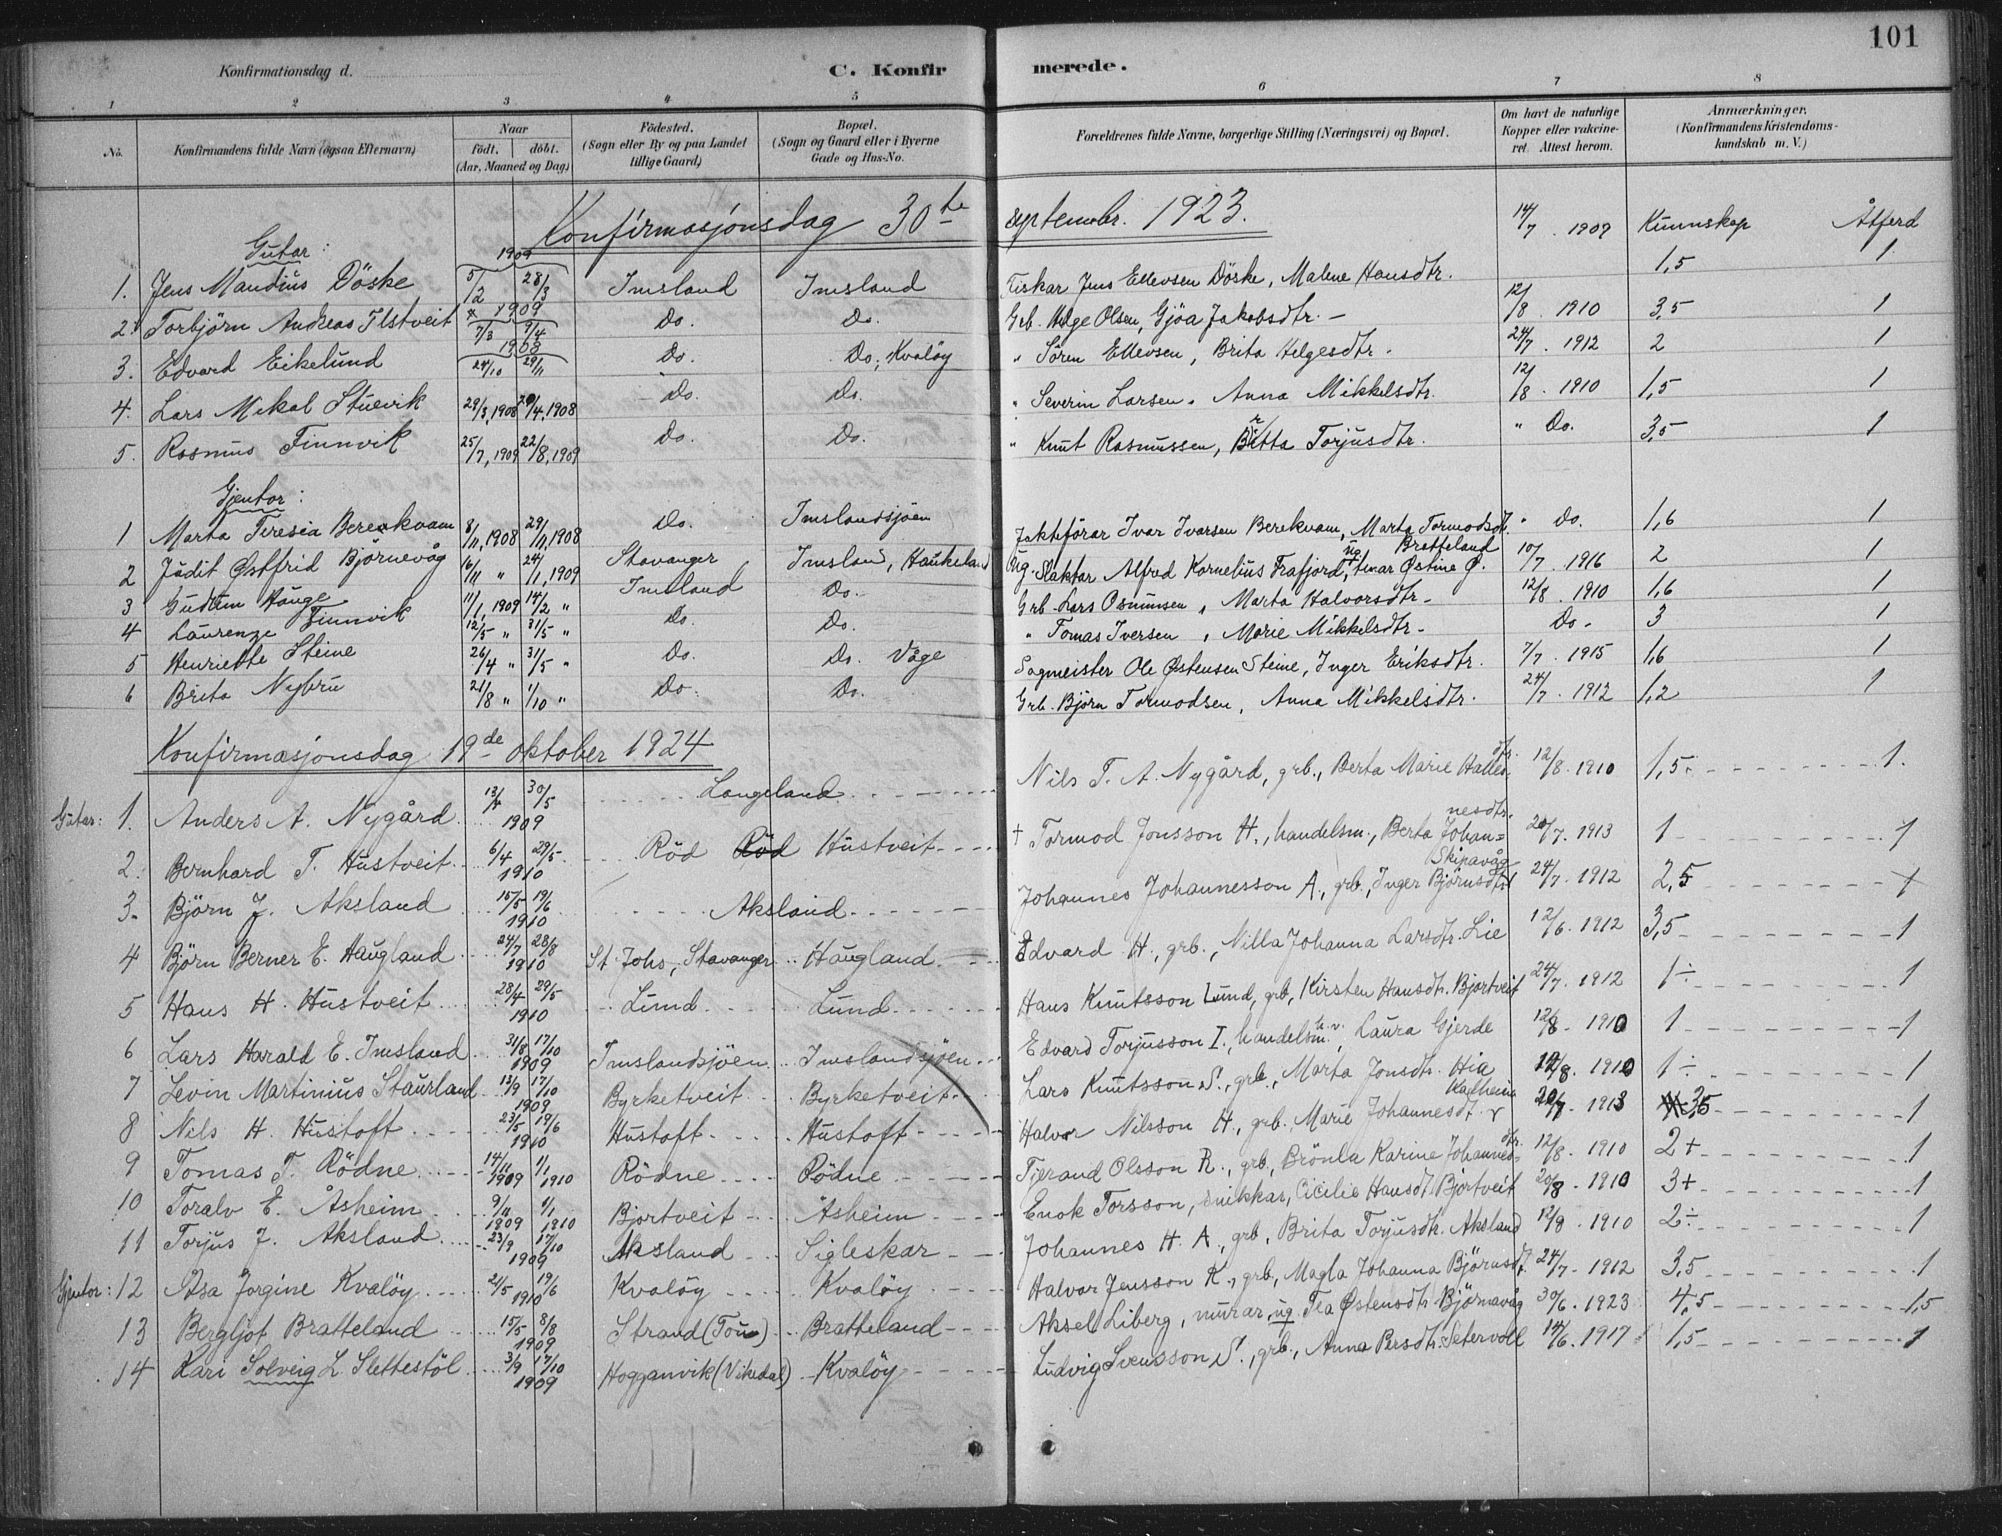 101
Konfirmationsdag d. C. Konfirmerede.
1 2 3 4 5 6 7 8
No. Konfirmandens fulde Navn (ogsaa Efternavn) Naar født. døbt. (Aar, Maaned og Dag) Fødested. (Sogn eller By og paa Landet tillige Gaard) Bopæl. (Sogn og Gaard eller i Byerne Gade og Hus-No. Forældrenes fulde Navne, borgerlige Stilling (Næringsvei) og Bopæl. Om havt de naturlige Kopper eller vakcineret. Attest herom. Anmærkninger. (Konfirmandens Kristendomskundskab m. V.)
Konfirmasjonsdag 30te septembr. 1923.
Kunnskap Åtferd
Gutar:
1. Jens Mandius Döske 1909 5/2 28/3 Imsland Imsland Fiskar Jens Ellevsen Döske, Malene Hansdtr. 14/7. 1909 1,5 1
2. Torbjörn Andreas Ilstveit 1909 7/3 9/4 Do. Do. Grb. Helge Olsen, Gjöa Jakobsdtr. 12/8. 1910 3,5 1
3. Edvard Eikelund 1908 24/10 29/11 Do. Do, Kvalöy " Sören Ellevsen, Brita Helgesdtr. 24/7. 1912 2 1
4. Lars Mikal Stuevik 29/3, 1908 20/4, 1908 Do. Do. " Severin Larsen, Anna Mikkelsdtr. 12/8. 1910 1,5 1
5. Rasmus Finnvik 25/7, 1909 22/8, 1909 Do. Do. " Knut Rasmussen, Britta Torjusdtr. " Do. 3,5 1
Gjentor:
1 Marta Teresia Berekvam 8/11, 1908 29/11, 1908 Do. Imslandsjöen Jakteförar Ivar Ivarsen Berekvam, Marta Tormodsdtr. " Do. 1,6 1
2 Judit Østfrid Björnevåg 16/11 " 24/1, 1909 Stavanger Imsland, Haukeland Ug. Slaktar Alfred Kornelius Trafjord, ug Østine Ø. Bratteland 10/7. 1916 2 1
3 Gudrun Hauge 11/1, 1909 14/2 " Imsland Do. Grb. Lars Osmunsen, Marta Halvorsdtr. 12/8. 1910 1,6 1
4 Laurenze Finnvik 12/5 " 31/5 " Do. Do. " Tomas Iversen, Marie Mikkelsdtr. Do. 3 1
5 Henriette Steine 26/4 " 31/5 " Do. Do. Våge Sagmeister Ole Østensen Steine, Inger Eriksdtr. 7/7. 1915 1,6 1
6 Brita Nybru 21/8 " 1/10 " Do. Do. Grb. Björn Tormodsen, Anna Mikkelsdtr. 24/7. 1912 1,2 1
Konfirmasjonsdag 19de oktober 1924
Gutar: 1. Anders A. Nygård 13/4 30/5 1909 Langeland Nils T. A. Nygård, grb., Berta Marie Halles dtr. 12/8. 1910 1,5 1.
2. Bernhard T. Hustveit 6/4 29/5 1910 Röd Röd Hustveit + Tormod Jonsson H., handelsm., Berta Johannesdtr. 20/7. 1913 1 1
3. Björn J. Aksland 15/5 19/6 1910 Aksland Johannes Johannesson A., grb., Inger Björnsdtr. Skipavåg 24/7. 1912 2,5 1
4 Björn Berner E. Haugland 24/7 28/8 1910 St. Johs, Stavanger Haugland Edvard H., grb., Nilla Johanna Larsdtr. Lie 12/6. 1912 3,5 1
5 Hans H. Hustveit 28/4 29/5 1910 Lund Lund Hans Knutsson Lund, grb, Kirsten Hansdtr. Bjortveit 24/7. 1912 1÷ 1
6 Lars Harald E. Imsland 31/8 17/10 1909 Imslandsjöen Imslandsjöen Edvard Torjusson I., handelsm., Laura Gjerde 12/8. 1910 1 1
7 Levin Martinius Staurland 13/9 17/10 1909 Byrketveit Byrketveit Lars Knutsson S., grb., Marta Jonsdtr. Hia 12/8. 1910 1÷ 1
8 Nils H. Hustoft 23/5 19/6 1910 Hustoft Hustoft Halvor Nilsson H., grb. Marie Johannesdt. 20/7. 1913 3,5 1
9 Tomas T. Rödne 14/11 1909 1/1 1910 Rödne Rödne Tjerand Olsson R., grb, Brönla Karine Johannes dtr. 12/8. 1910 2+ 1
10 Toralv E. Åsheim 9/11 1909 1/1 1910 Bjortveit Åsheim Enok Torsson, snikkar, Cicilie Hansdt. Bjortveit 20/8. 1910 3+ 1
11 Torjus J. Aksland 23/9 17/10 1909 Aksland Sigleskar Johannes H. A., grb, Brita Torjusdtr. Aksland 12/8. 1910 2÷ 1
Gjentor: 12 Åsa Jorgine Kvalöy 21/5 19/6 1910 Kvalöy Kvalöy Halvor Jensson K., grb, Magla Johanna Björnsdt. 24/7. 1912 3,5 1
13 Bergljot Bratteland 15/5 8/8 1909 Strand (Tou) Bratteland Aksel Liberg, murar, ug. Tea Østensdtr Björnavåg 30/6. 1923 4,5 1,5
14 Kari Solveig L. Slettestöl 3/9 17/10 1909 Hogganvik (Vikedal) Kvalöy Ludvig Svensson S., grb., Anna Persdtr. Setervoll 14/6. 1917 1,5 1